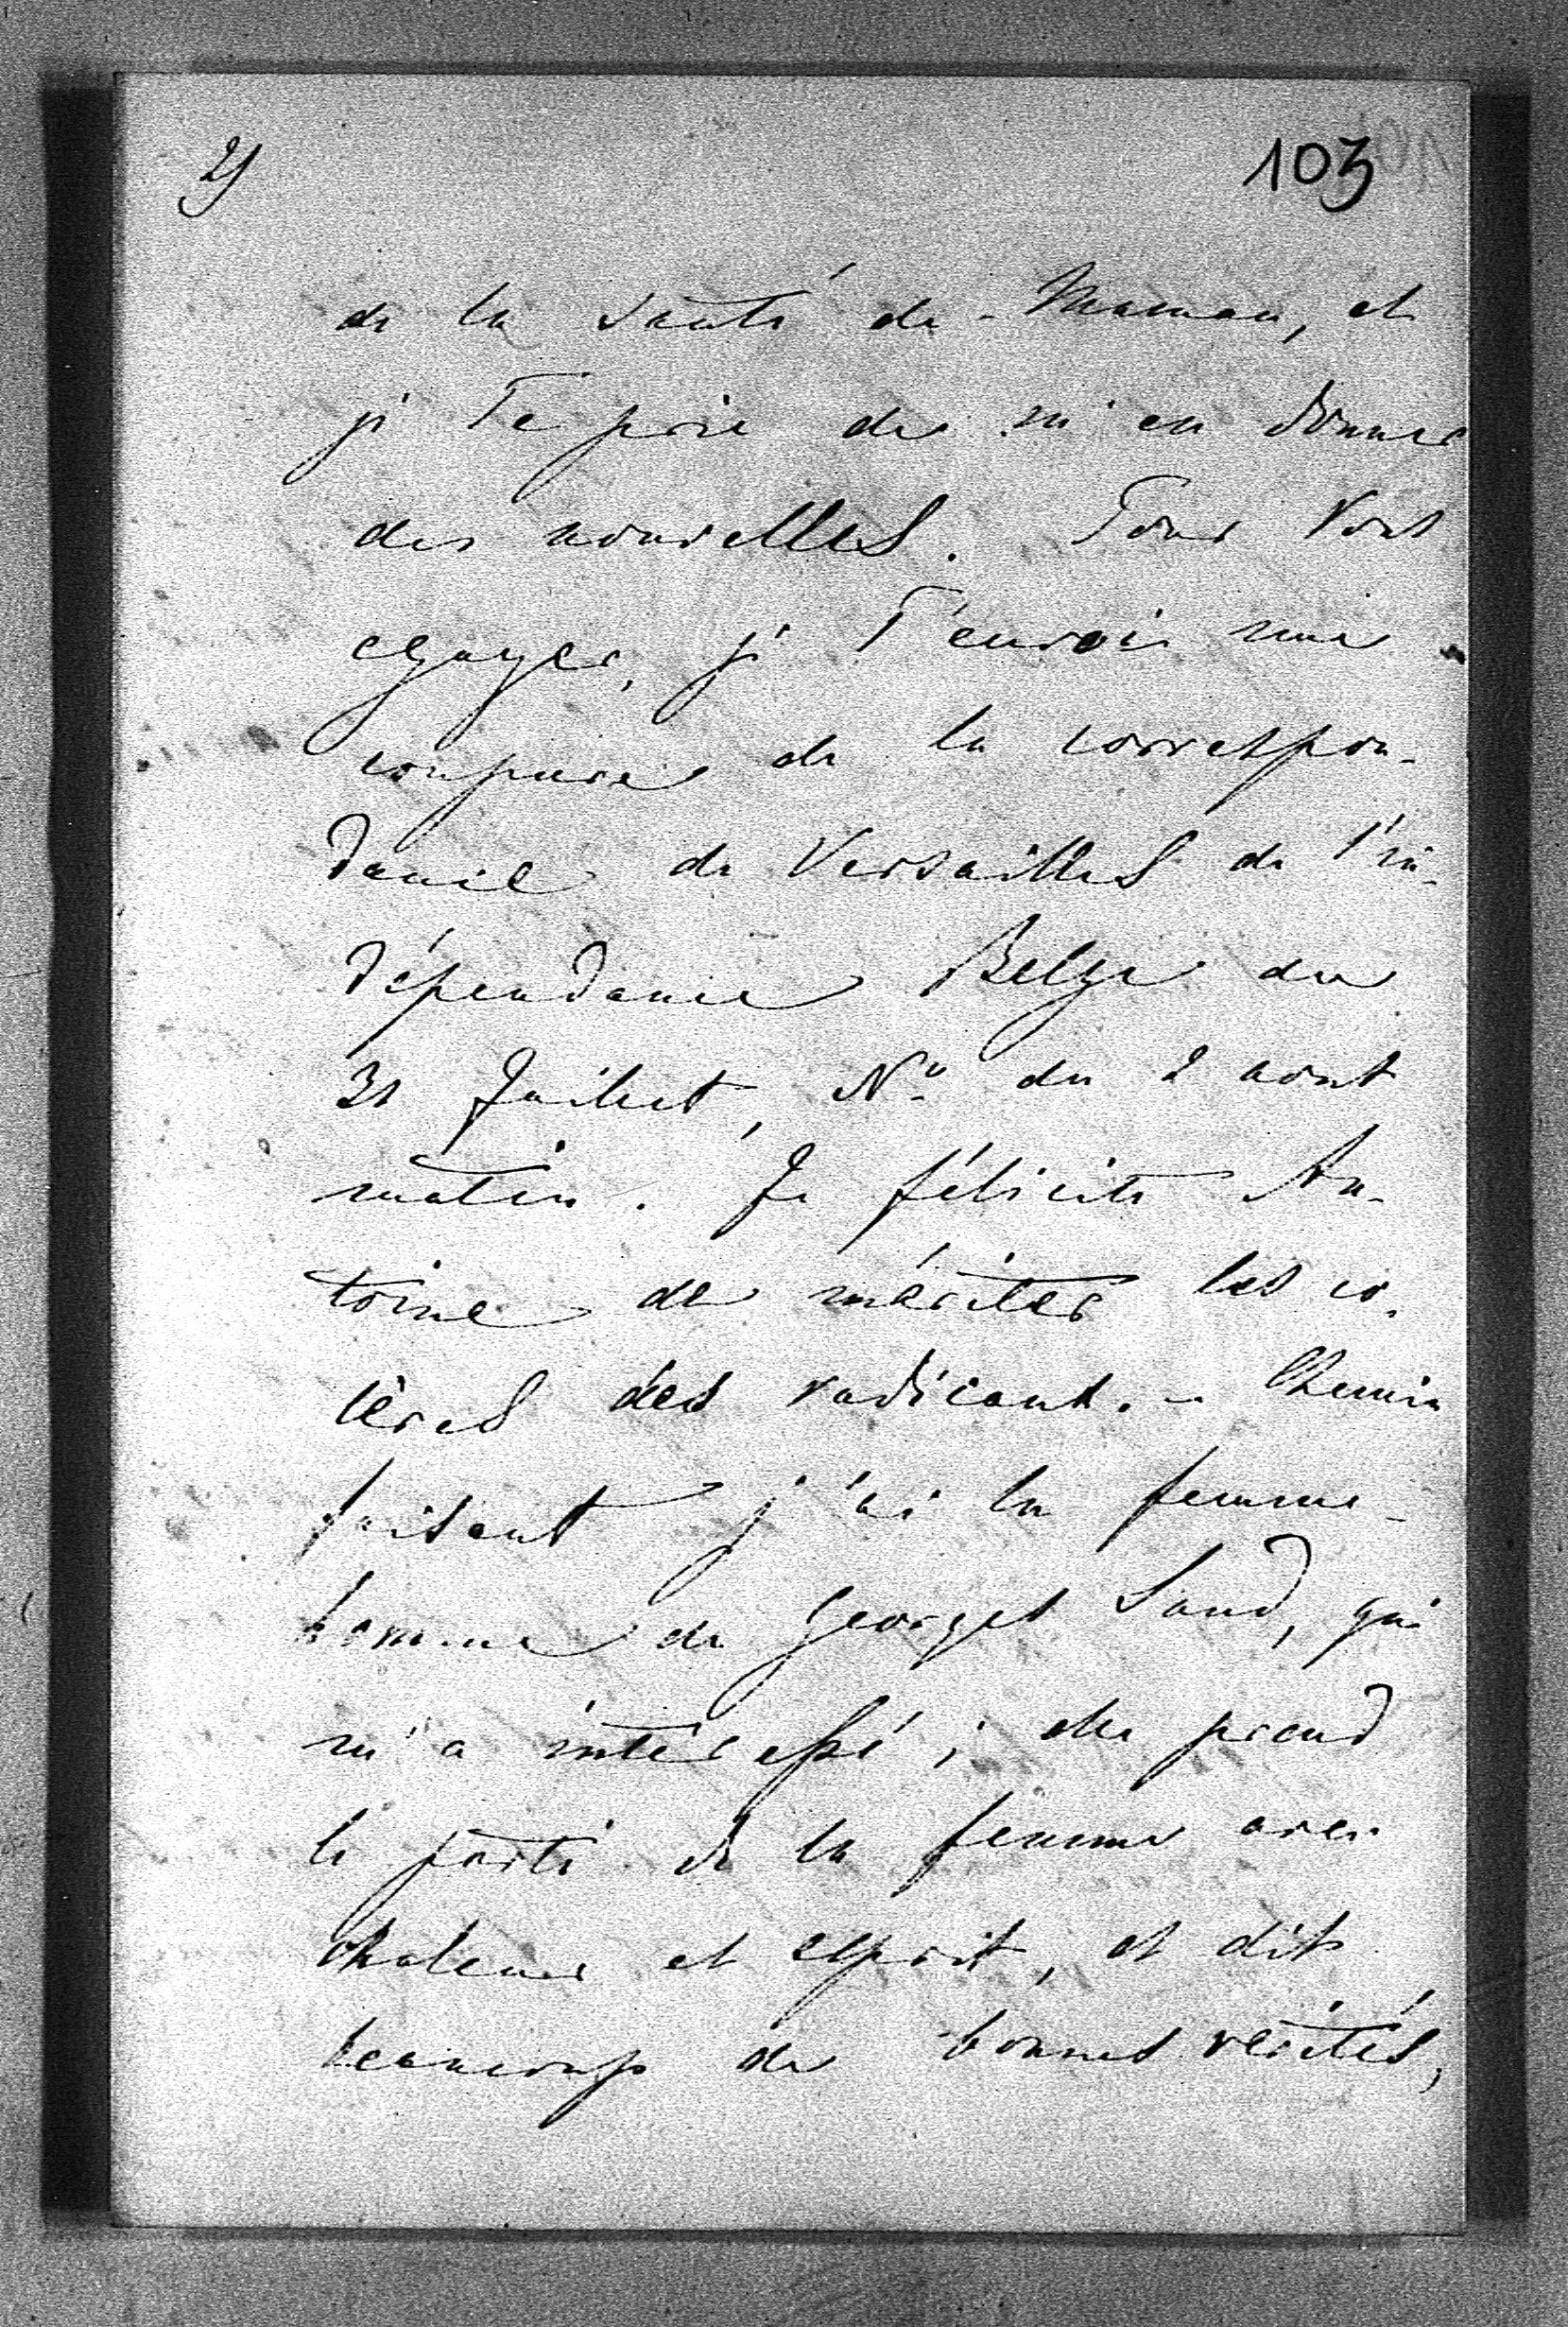 2)
103
de la santé de Maman, et
je Te prie de m'en donner
des nouvelles. Pour Vous
egayer, je T'envoie une
coupure de la correspon-
dance de Versailles de l'in-
dépendance Belge du
31 Juillet, No du 2 aout
matin. Je félicite An-
toine de mériter les co-
lères des radicaux. - Chemin
faisant j'ai lu femme-
homme de Georges Sand, qui
m'a intéressé; elle prend
le parti de la femme avec
chaleur et esprit, et dit
beaucoup de bonnes vérités,